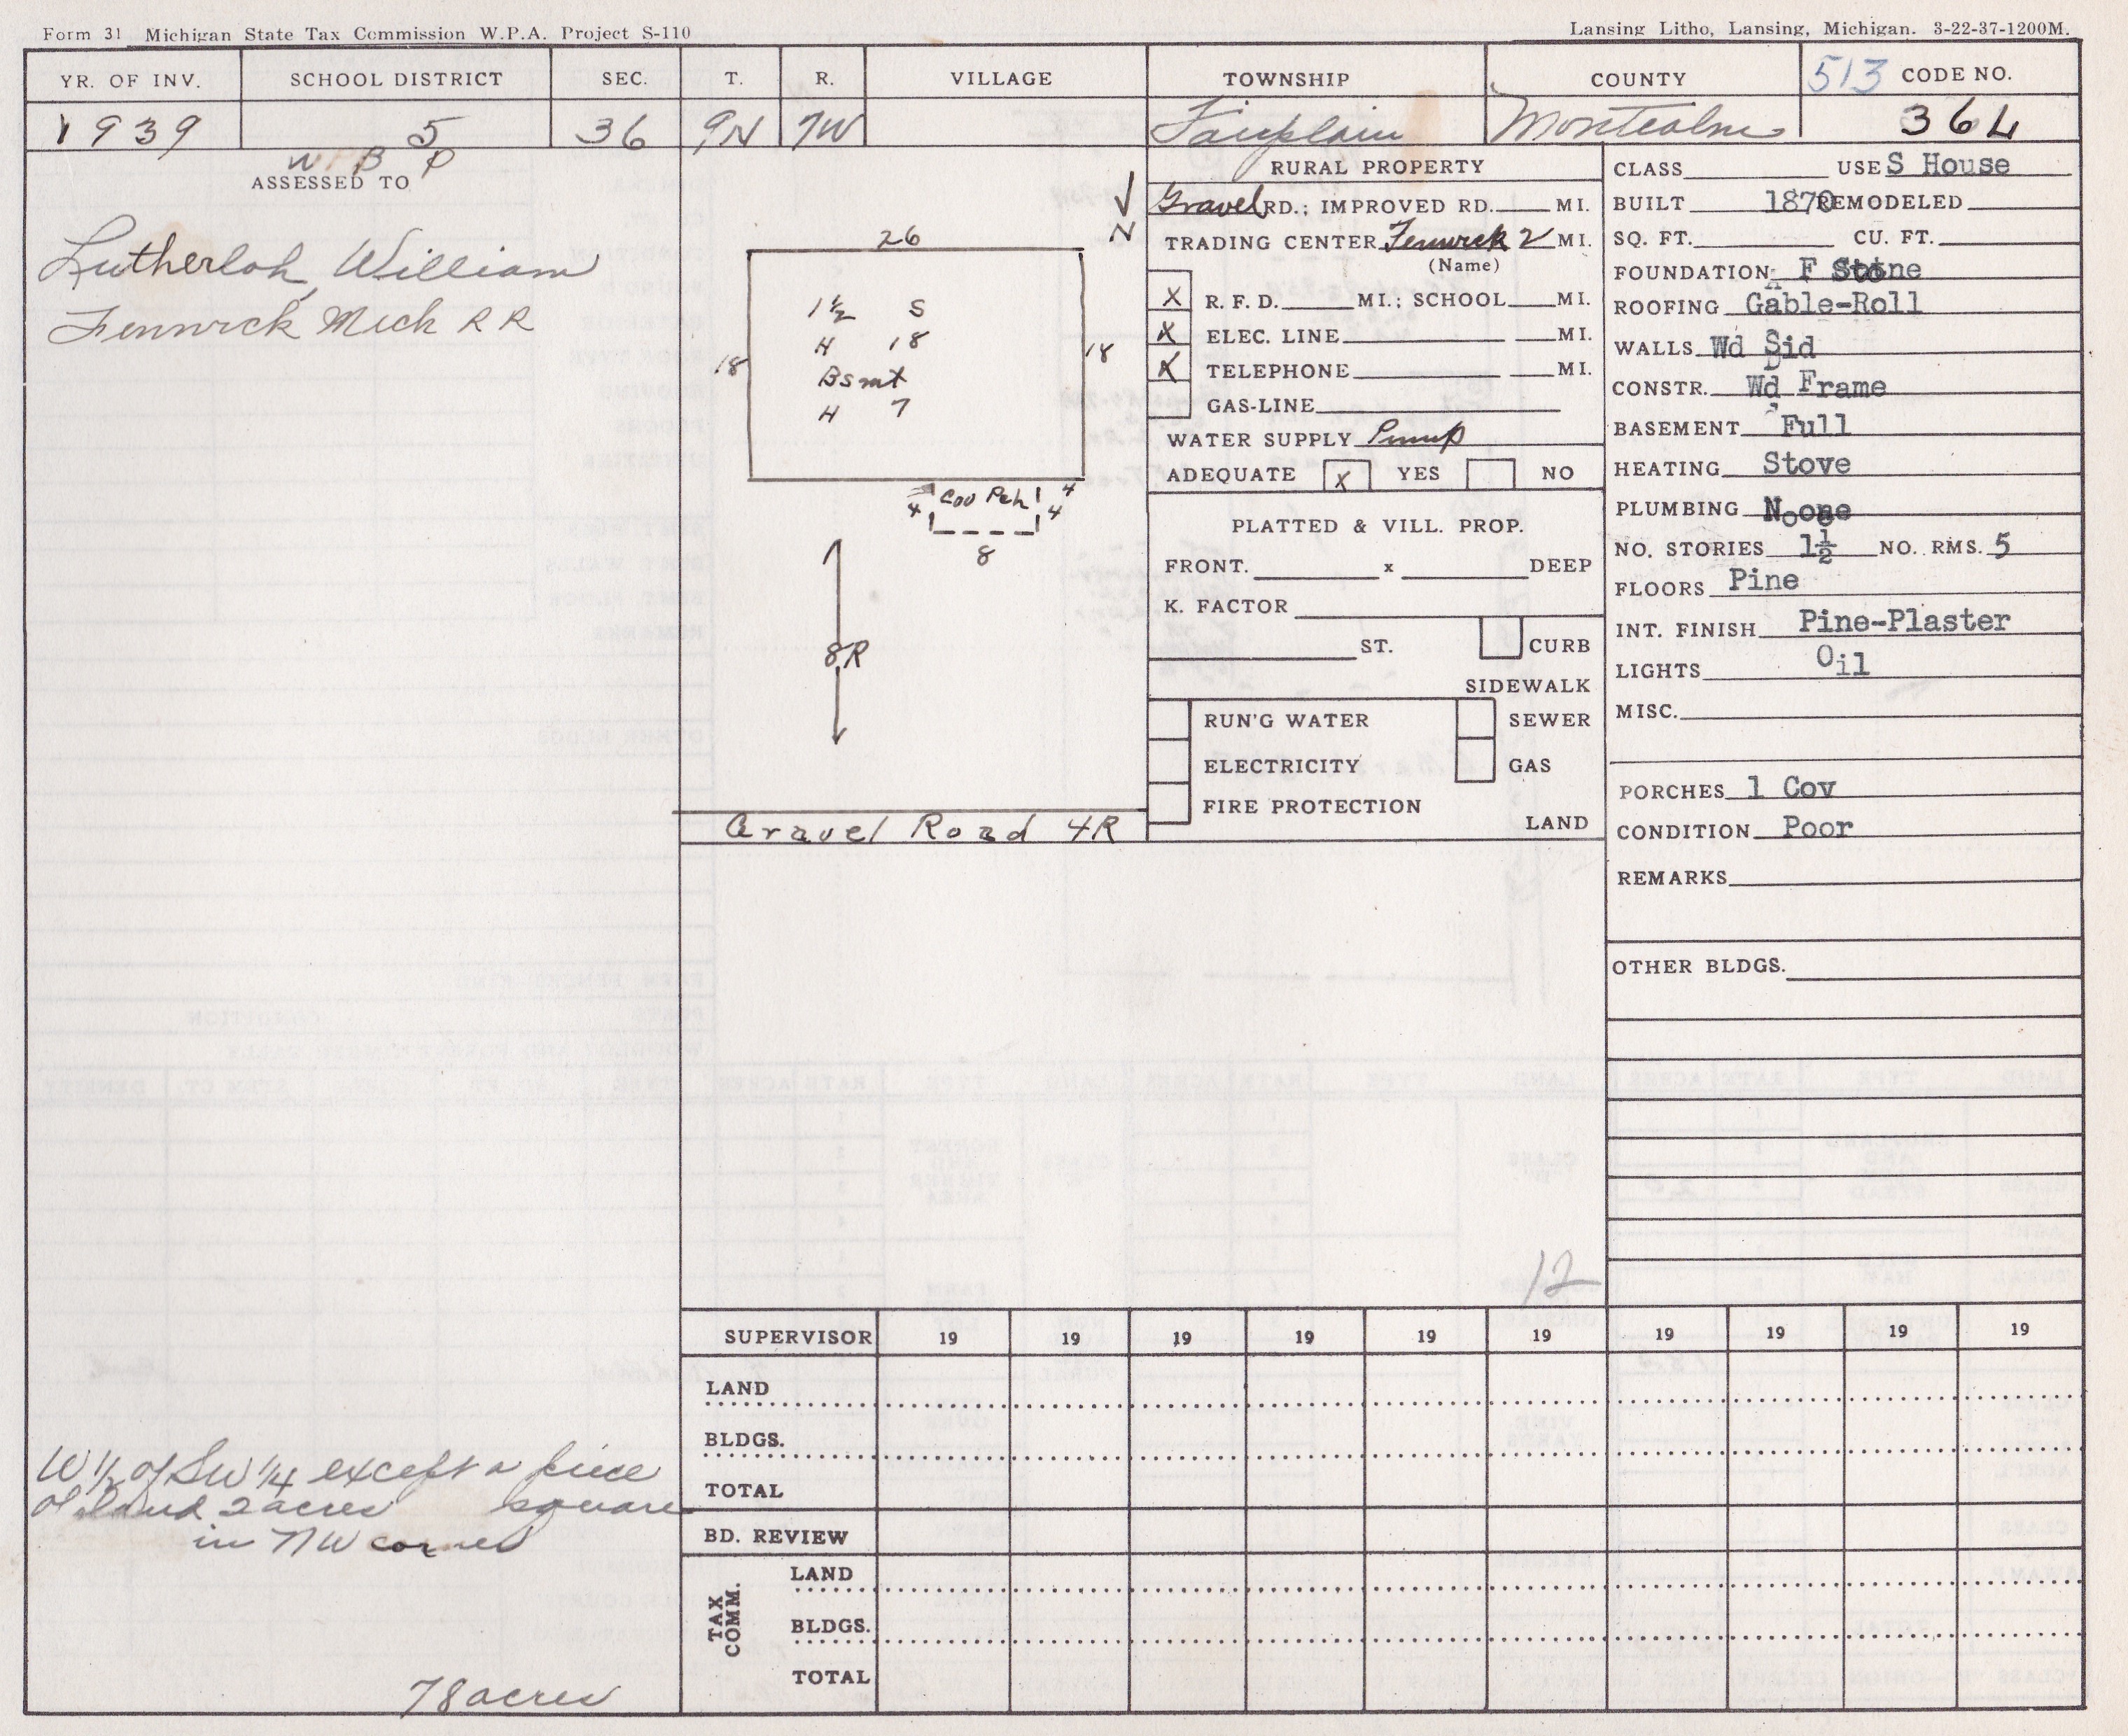 Form 31 Michigan State Tax Commission W.P.A. Project S-110
Lansing Litho, Lansing, Michigan. 3-22-37-1200M.
YR. OF INV. SCHOOL DISTRICT SEC. T. R. VILLAGE TOWNSHIP COUNTY 513 CODE NO.
1939 5 36 9N 7W Fairplain Montcalm 36L
W B P
ASSESSED TO
Lutherloh, William
Fenwick Mich R R
W 1/2 of SW 1/4 except a piece
of land 2 acres square
in NW corner
78 acres
N
26
1½ S
H 18
18
18
Bsmt
H 7
Cov Pch
4
4
4
8
8R
Gravel Road 4R
RURAL PROPERTY
Gravel RD.; IMPROVED RD. MI.
TRADING CENTER Fenwick 2 MI.
(Name)
X R. F. D. MI.; SCHOOL MI.
X ELEC. LINE MI.
X TELEPHONE MI.
GAS-LINE
WATER SUPPLY Pump
ADEQUATE X YES NO
PLATTED & VILL. PROP.
FRONT. x DEEP
K. FACTOR
ST. CURB
SIDEWALK
RUN'G WATER SEWER
ELECTRICITY GAS
FIRE PROTECTION
LAND
CLASS USE S House
BUILT 1870 REMODELED
SQ. FT. CU. FT.
FOUNDATION F Stone
ROOFING Gable-Roll
WALLS Wd Sid
CONSTR. Wd Frame
BASEMENT Full
HEATING Stove
PLUMBING None
NO. STORIES 1½ NO. RMS. 5
FLOORS Pine
INT. FINISH Pine-Plaster
LIGHTS Oil
MISC.
PORCHES 1 Cov
CONDITION Poor
REMARKS
OTHER BLDGS.
12
SUPERVISOR 19 19 19 19 19 19 19 19 19 19
LAND
BLDGS.
TOTAL
BD. REVIEW
TAX COMM.
LAND
BLDGS.
TOTAL